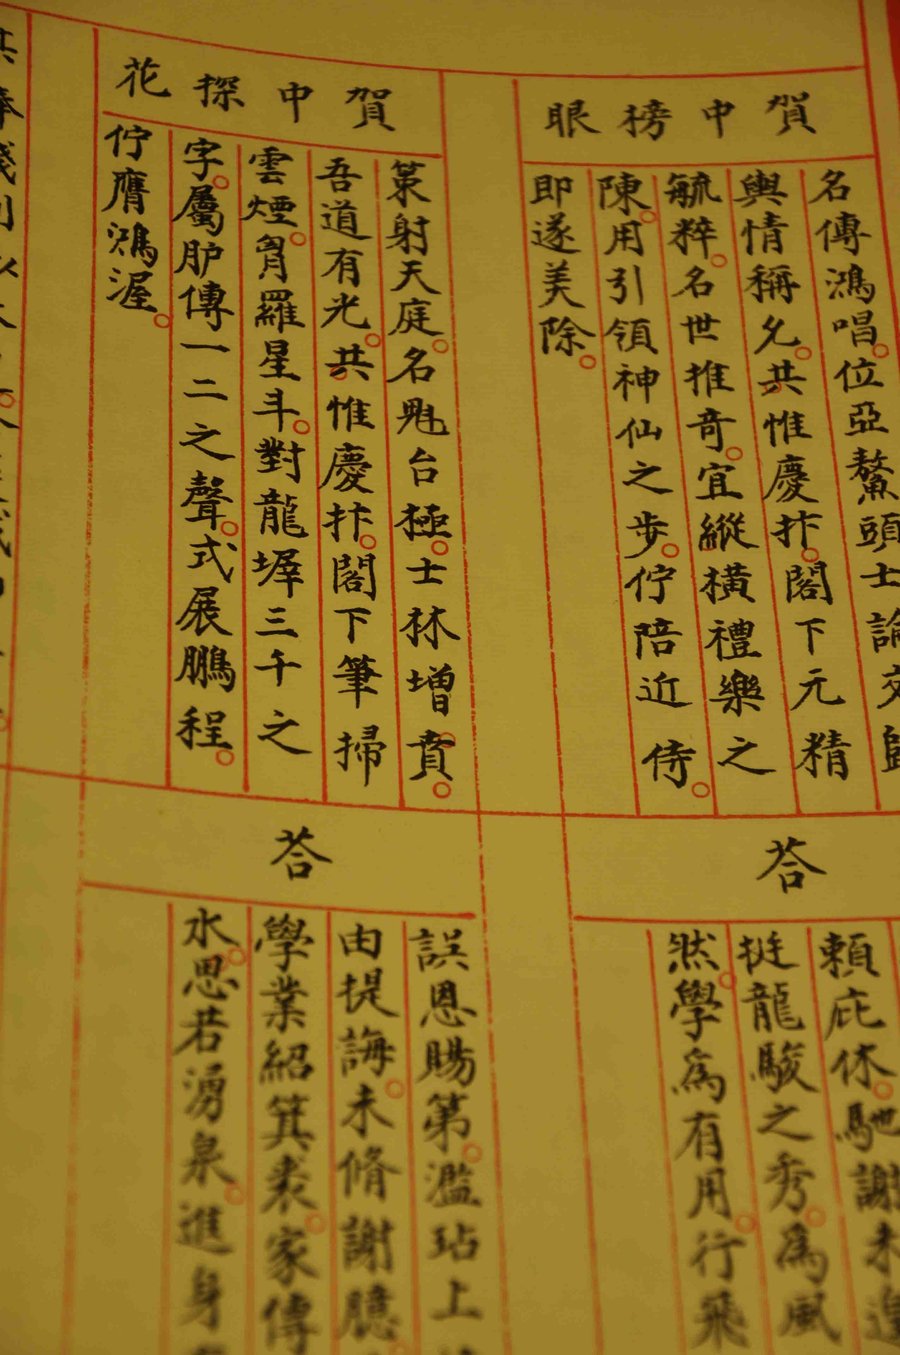 賀中榜眼
名傳鴻唱。位亞鰲頭士論交歸
輿情稱允。共惟慶抃。閣下元精
毓粹。名世推奇。宜縱橫禮樂之
陳。用引領神仙之步。佇陪近侍。
即遂美除。
荅
賴庇休。馳謝未遑
挺龍駿之秀。為風
然。學為有用。行飛
賀中探花
策射天庭。名魁台極。士林增賁。
吾道有光。共惟慶抃。閣下筆掃
雲煙。胷羅星斗。對龍墀三千之
字。屬胪傳一二之聲。式展鵬程。
佇膺鴻渥。
荅
誤恩賜第。濫玷上
由提誨。未脩謝臆
學業紹箕裘。家傳
水。思若湧泉。進身